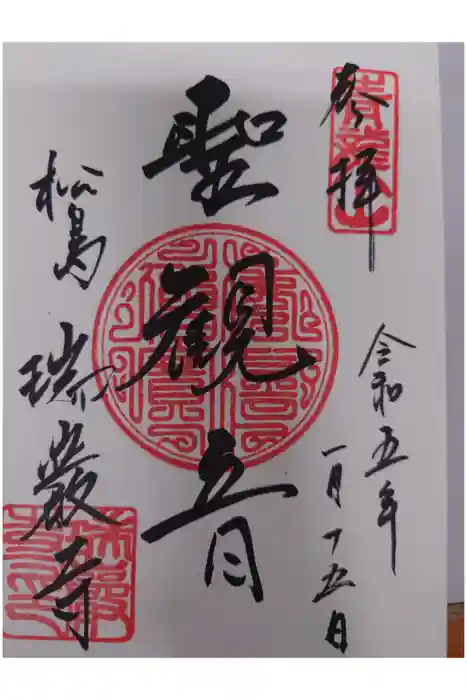 奉拝
令和五年
一月十五日
聖観音
松島 瑞巌寺